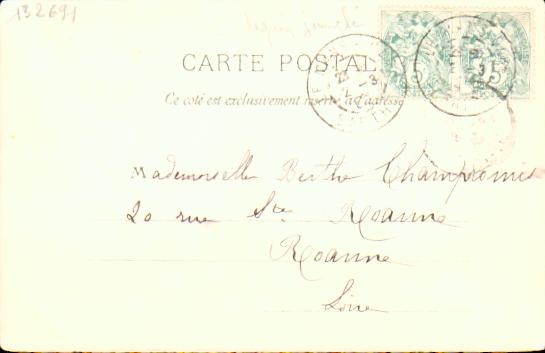 132691
CARTE POSTALE
Ce coté est exclusivement réservé à l'adresse
Mademoiselle Berthe Champromis
20 rue Ste Roanne
Roanne
Loire